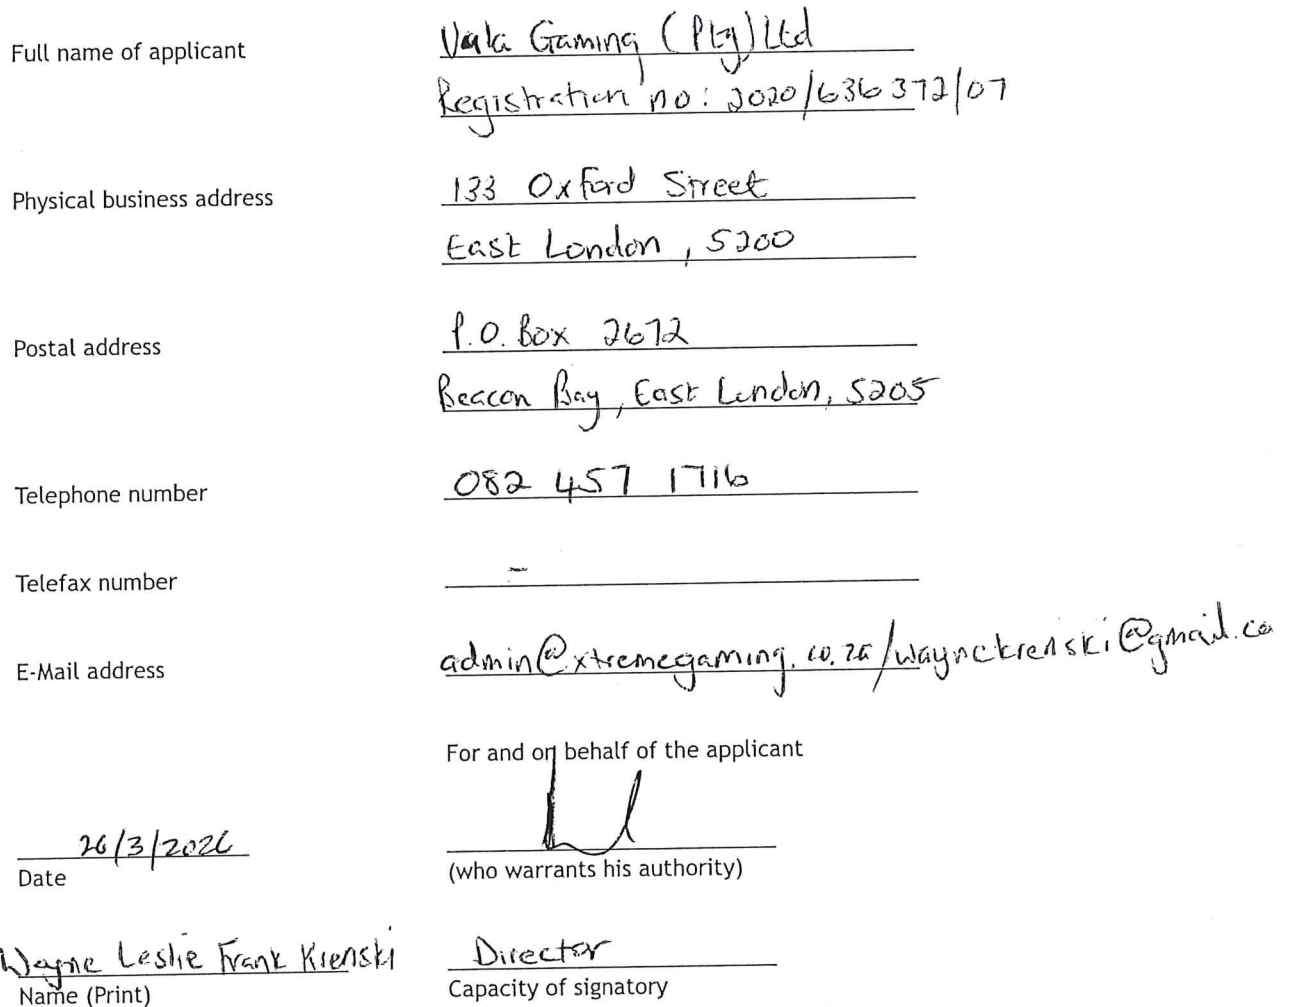 Full name of applicant Vula Gaming (Pty) Ltd
Registration no: 2020/636372/07
Physical business address 133 Oxford Street
East London, 5200
Postal address P.O. Box 2672
Beacon Bay, East London, 5205
Telephone number 082 457 1716
Telefax number -
E-Mail address admin@xtremegaming.co.za/waynekrenski@gmail.co
For and on behalf of the applicant
26/3/2026
(who warrants his authority)
Date
Wayne Leslie Frank Krenski Director
Name (Print) Capacity of signatory